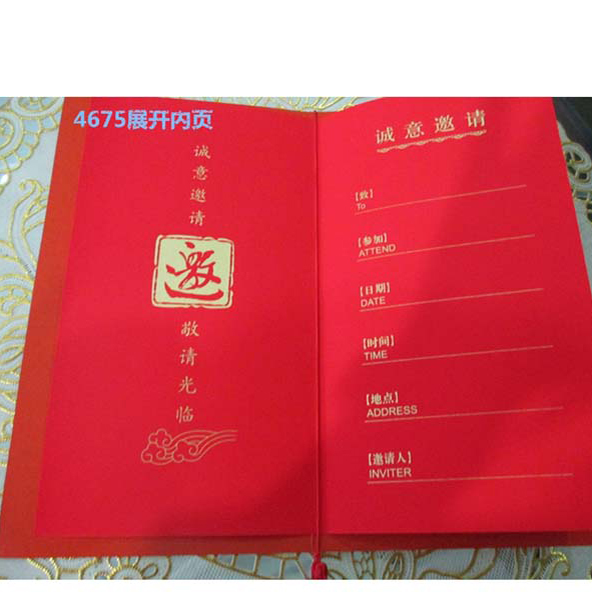 4675展开内页
诚意邀请
邀
敬请光临
诚意邀请
【致】
To
【参加】
ATTEND
【日期】
DATE
【时间】
TIME
【地点】
ADDRESS
【邀请人】
INVITER